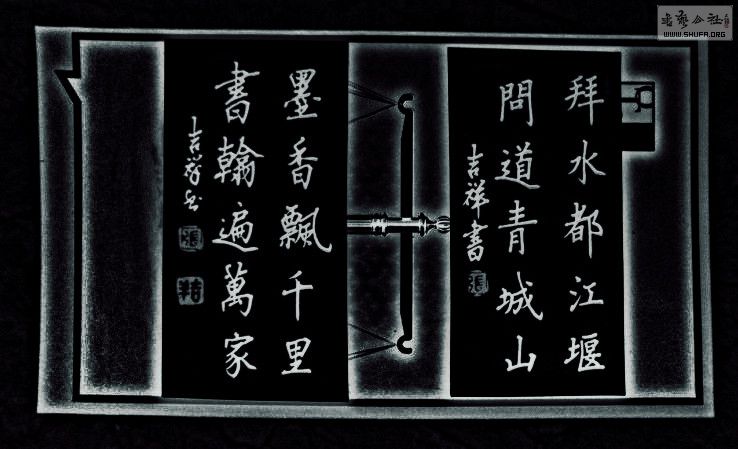 拜水都江堰
問道青城山
吉祥書
墨香飄千里
書翰遍萬家
吉祥書
書藝公社
WWW.SHUFA.ORG